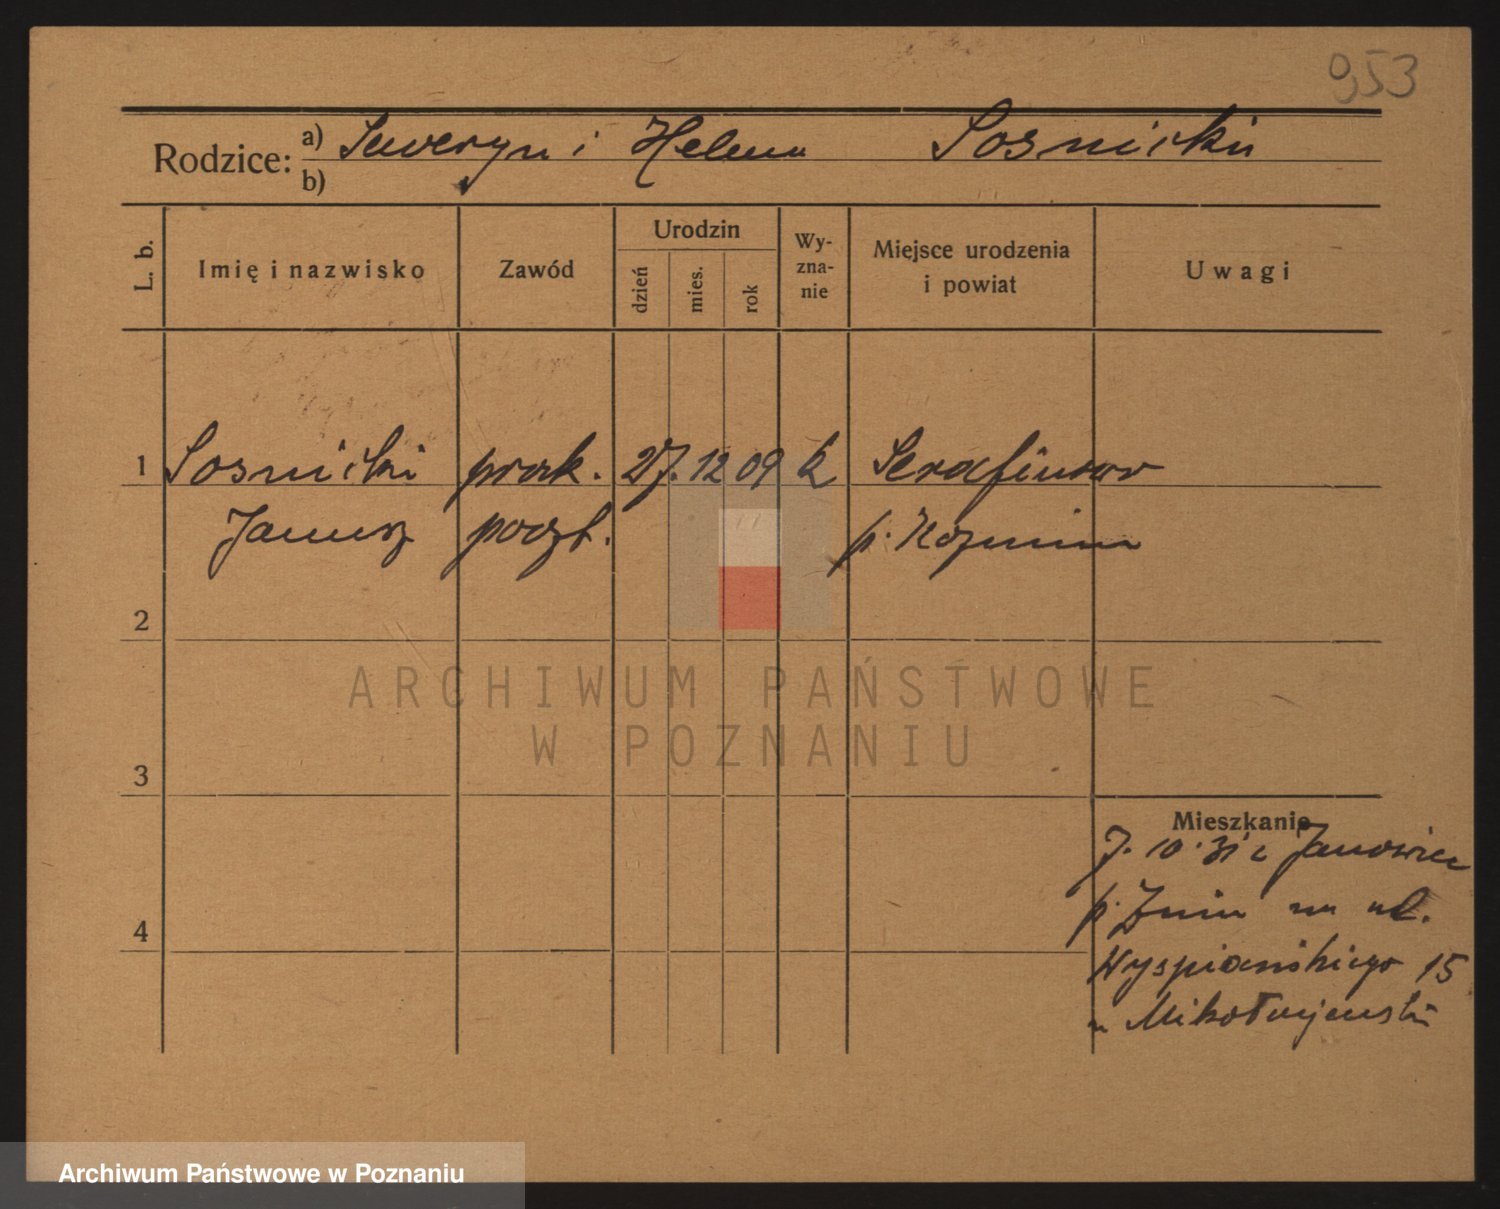 953
Rodzice: a) Seweryn i Helena Sosnicki
b)
L. b. Imię i nazwisko Zawód Urodzin dzień mies. rok Wy-zna-nie Miejsce urodzenia i powiat Uwagi
1 Sosnicki prak. 27. 12 09 k Serafinów
Janusz poczt. p. Kozmin
2
ARCHIWUM PAŃSTWOWE
W POZNANIU
3
Mieszkanie
7. 10. 31 z Janowiec
p. Znin na ul.
4
Wyspiańskiego 15
u Mikołajewski
Archiwum Państwowe w Poznaniu